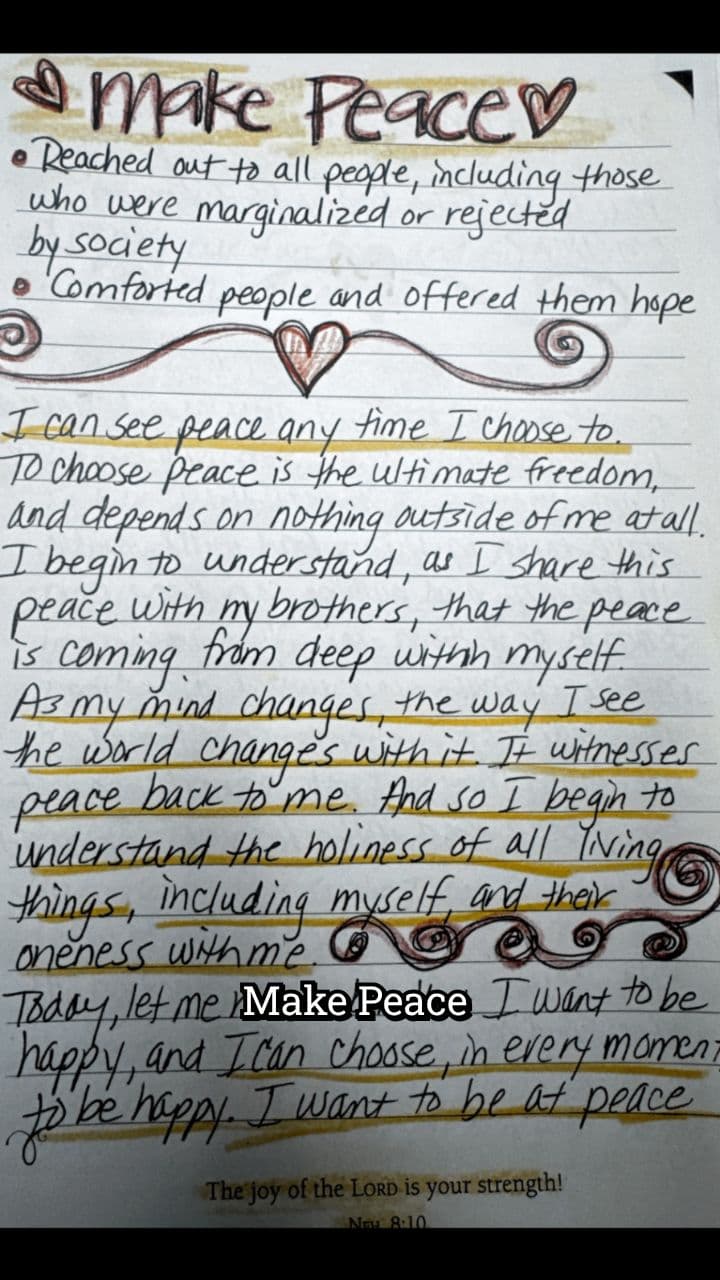 Make Peace
• Reached out to all people, including those
who were marginalized or rejected
by society
• Comforted people and offered them hope
I can see peace any time I choose to.
To choose peace is the ultimate freedom,
and depends on nothing outside of me at all.
I begin to understand, as I share this
peace with my brothers, that the peace
is coming from deep withh myself.
As my mind changes, the way I see
the world changes with it. It witnesses
peace back to me. And so I begin to
understand the holiness of all living
things, including myself, and their
oneness with me.
Today, let me I want to be
Make Peace
happy, and I can choose, in every moment
to be happy. I want to be at peace
The joy of the LORD is your strength!
NEH. 8:10